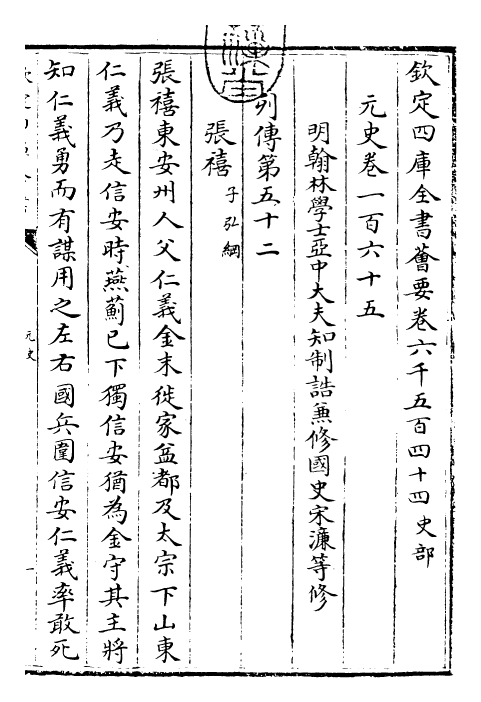 欽定四庫全書薈要卷六千五百四十四史部
元史卷一百六十五
明翰林學士亞中大夫知制誥兼修國史宋濂等修
列傳第五十二
張禧子弘綱
張禧東安州人父仁義金末徙家益都及太宗下山東
仁義乃走信安時燕薊已下獨信安猶為金守其主將
知仁義勇而有謀用之左右國兵圍信安仁義率敢死
元史
一